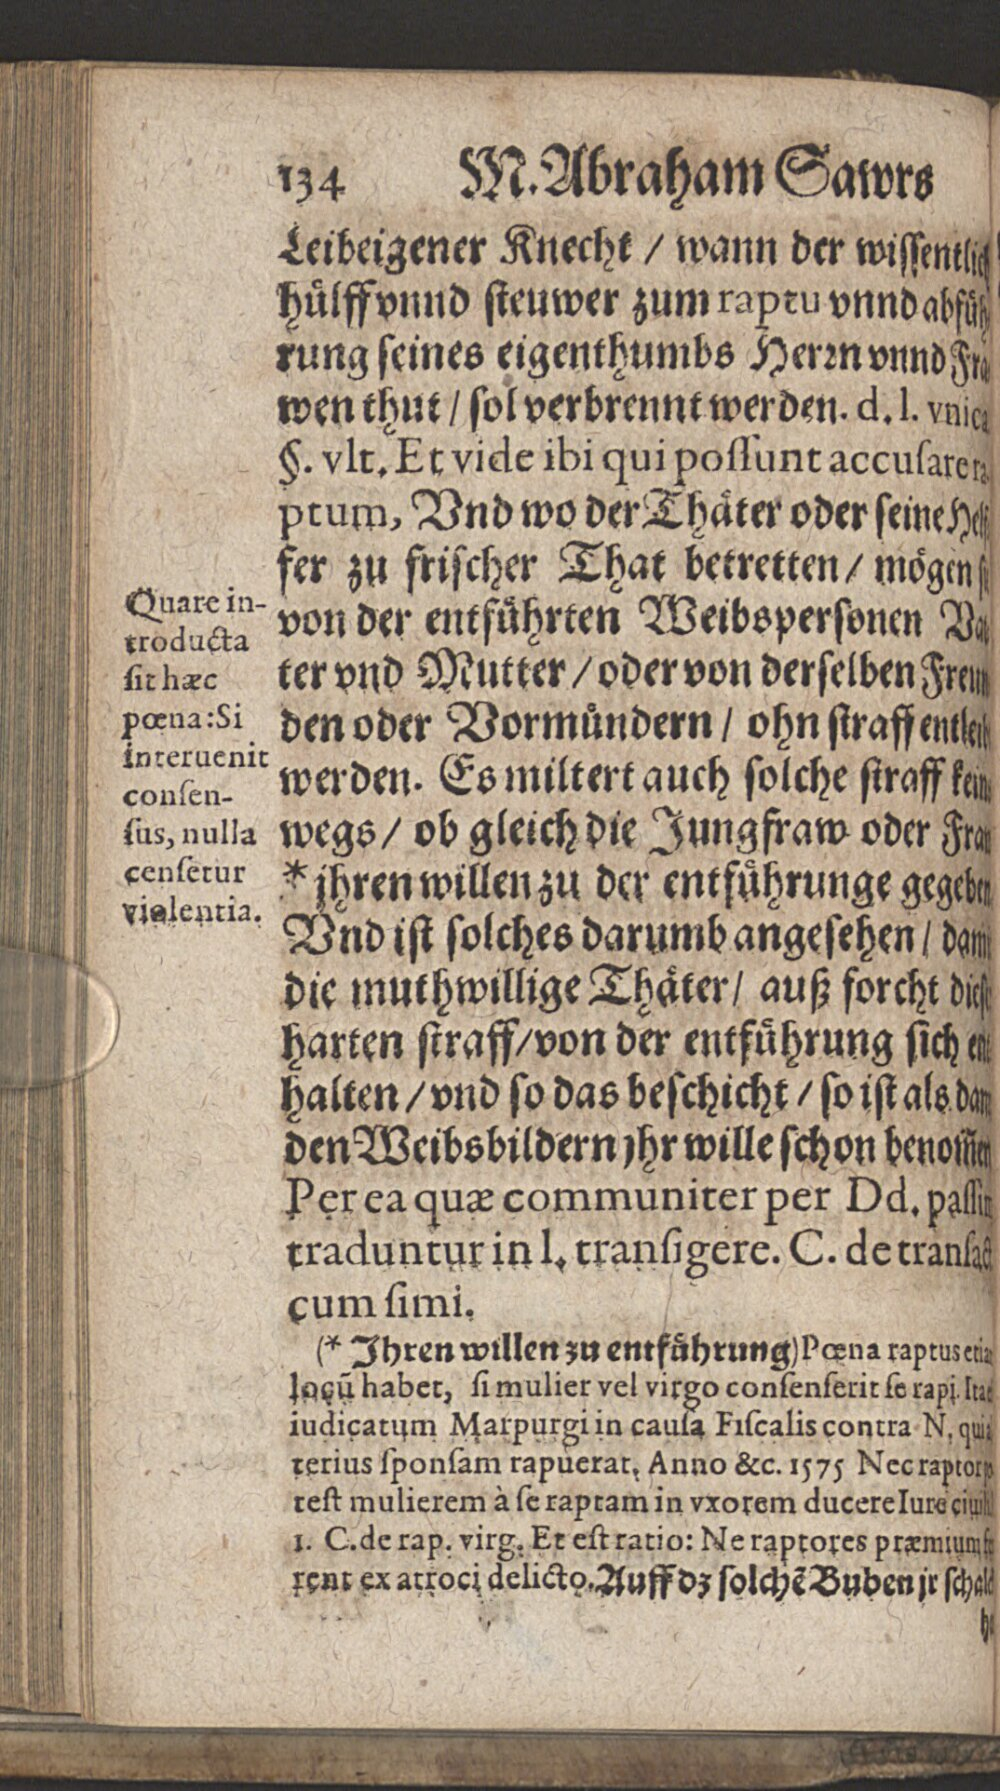 134 M. Abraham Sawrs
Leibeigener Knecht / wann der wissentlich
hůlff vnnd steuwer zum raptu vnnd abfůh
rung seines eigenthumbs Herrn vnnd Fra
wen thut / sol verbrennt werden. d. l. vnica
§. vlt. Et vide ibi qui possunt accusare ra
ptum, Vnd wo der Thäter oder seine Helf
fer zu frischer That betretten / mögen sie
von der entfůhrten Weibspersonen Vat
ter vnd Mutter / oder von derselben Freun
den oder Vormůndern / ohn straff entleibt
werden. Es miltert auch solche straff keins
wegs / ob gleich die Jungfraw oder Fraw
* jhren willen zu der entfůhrunge gegeben
Vnd ist solches darumb angesehen / damit
die muthwillige Thäter / auß forcht dieser
harten straff / von der entfůhrung sich ent
halten / vnd so das beschicht / so ist als dann
den Weibsbildern jhr wille schon benom̃en
Per ea quæ communiter per Dd. passim
traduntur in l. transigere. C. de transact.
cum simi.
Quare in-
troducta
sit hæc
pœna: Si
interuenit
consen-
sus, nulla
censetur
violentia.
(* Ihren willen zu entfůhrung) Pœna raptus etiam
locũ habet, si mulier vel virgo consenserit se rapi. Ita
iudicatum Marpurgi in causa Fiscalis contra N. quia
terius sponsam rapuerat, Anno &c. 1575 Nec raptor
test mulierem à se raptam in vxorem ducere Iure ciuili
1. C. de rap. virg. Et est ratio: Ne raptores præmium
rent ex atroci delicto. Auff dz solchẽ Buben jr schalck